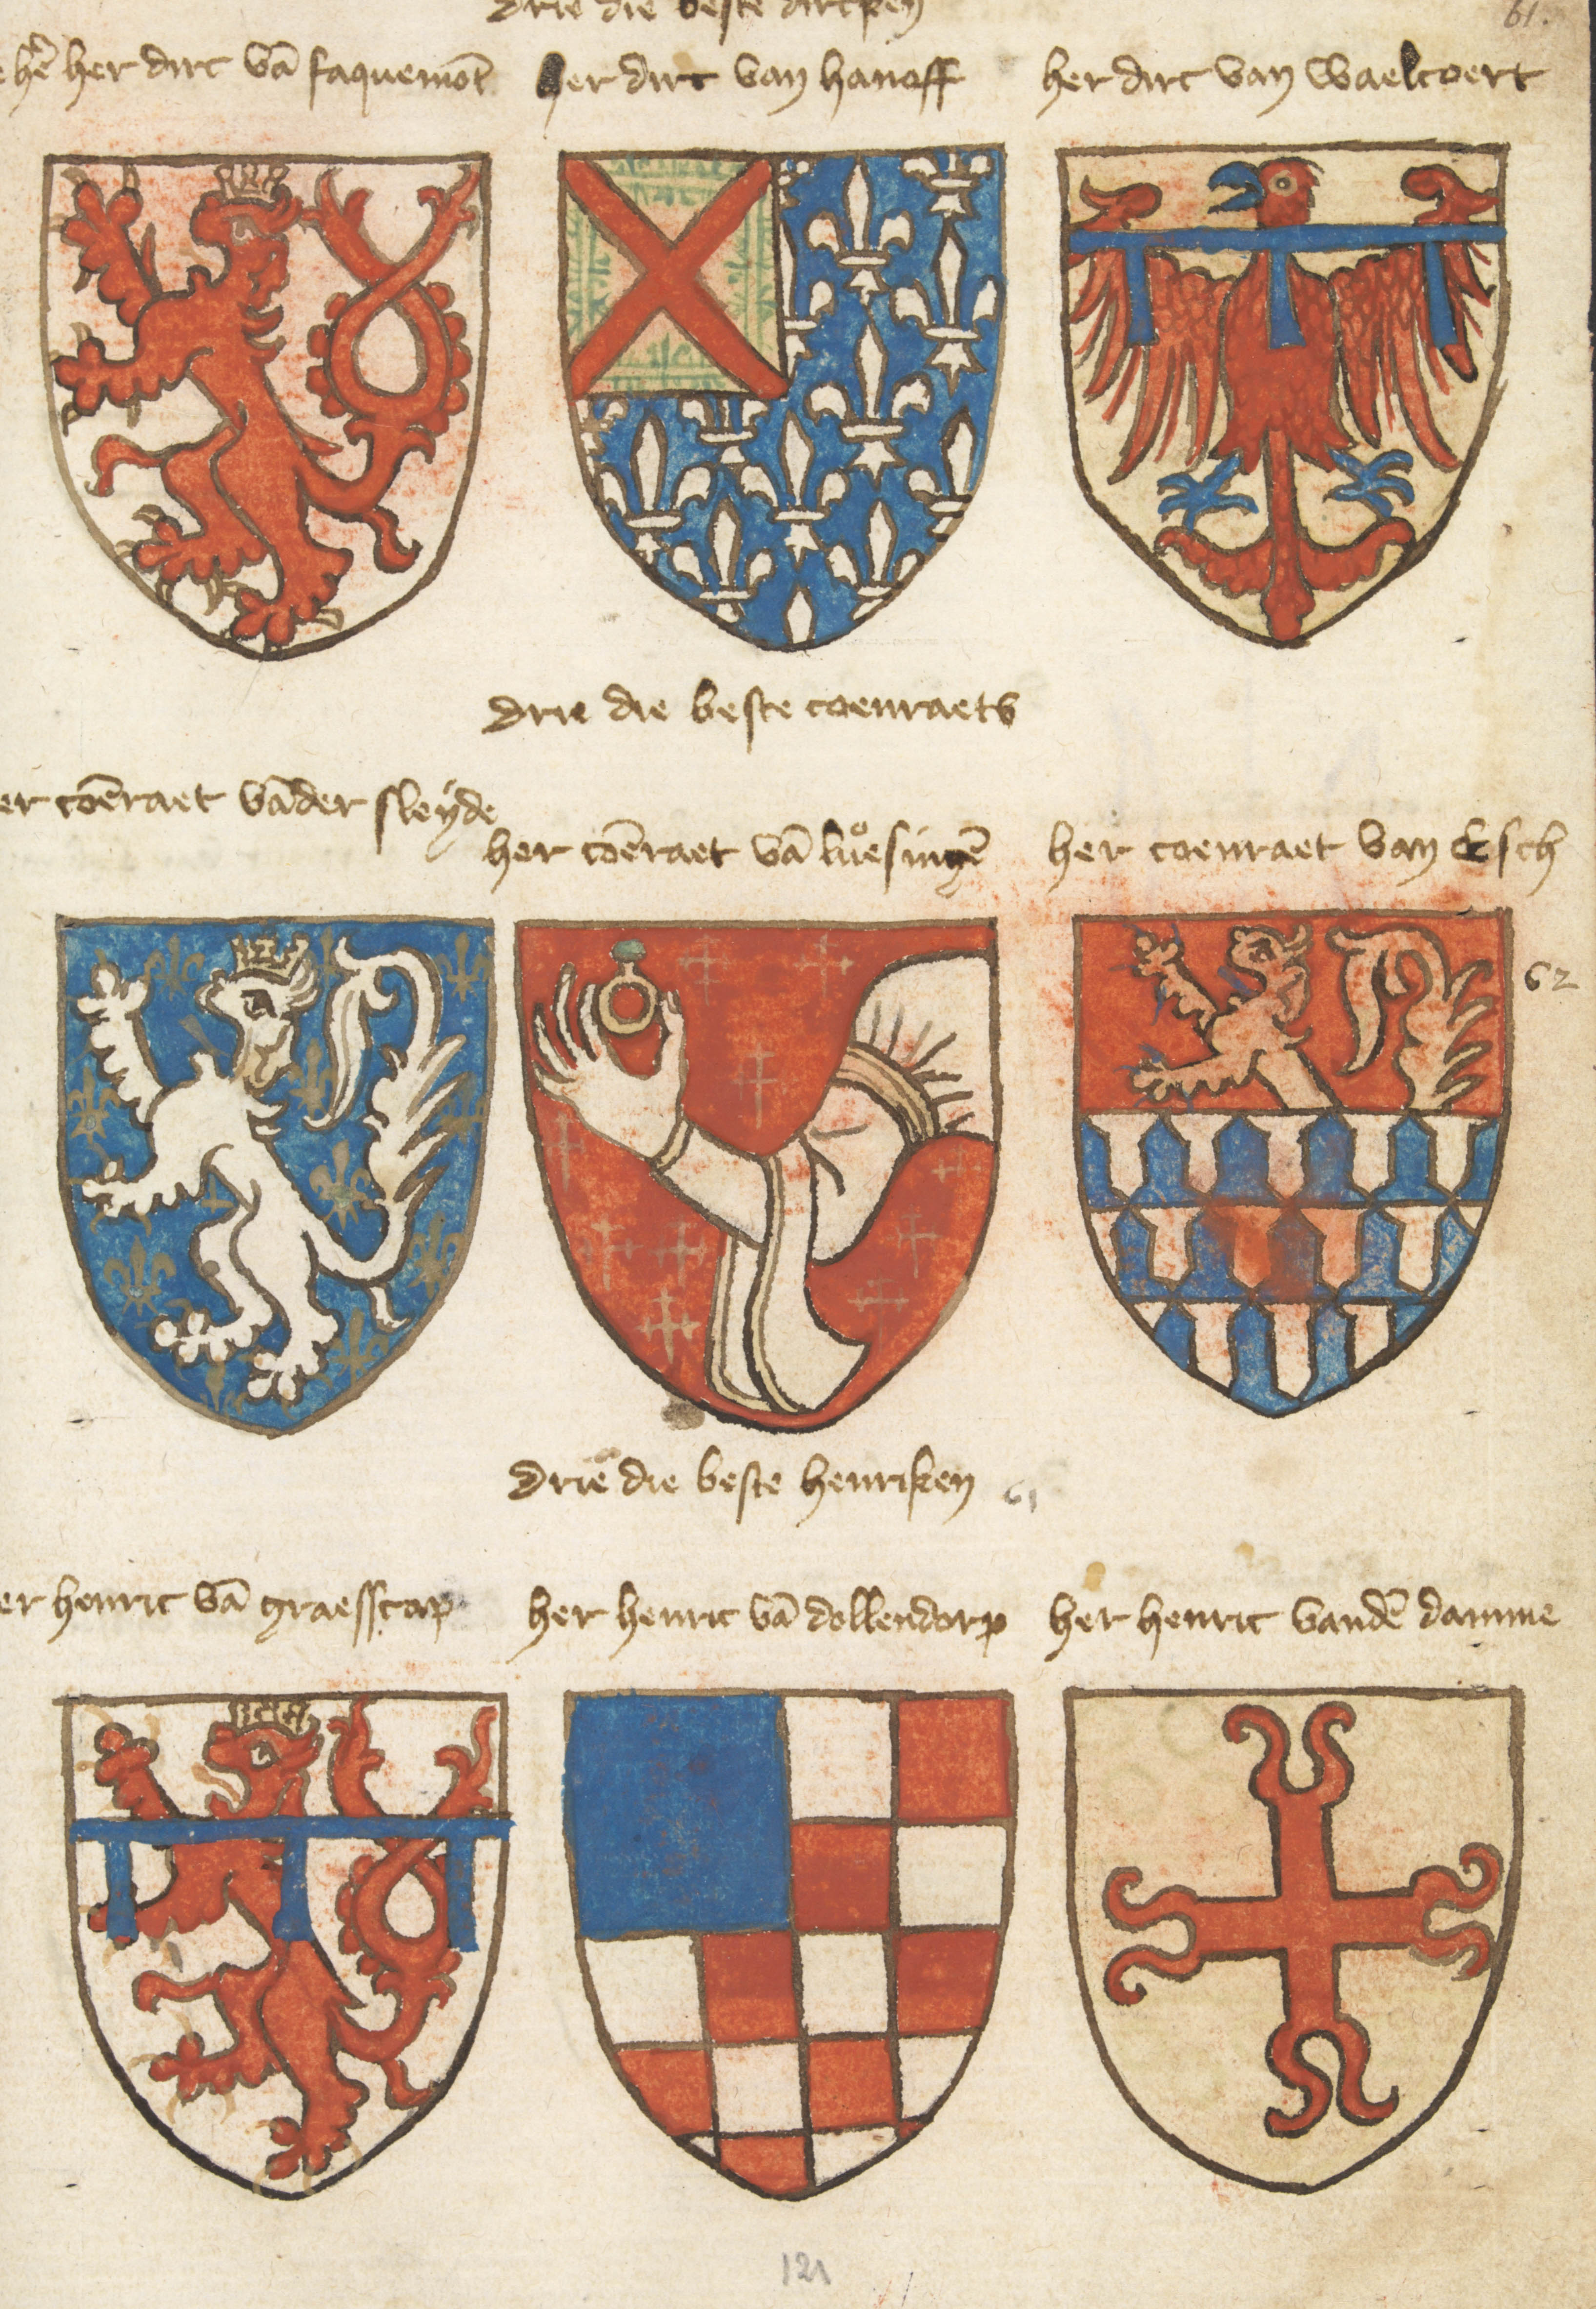 drie die beste dircken
61.
her dirc vā faquemōt
her dirc van hanoff
her dirc van waelcoert
drie die beste coenraets
er coēraet vāder sleyde
her coēraet vā lůesingē
her coenraet van Esch
62
drie die beste henriken
61
er henric vā graesscap
her henric vā dollendorp
her henric vandē damme
121